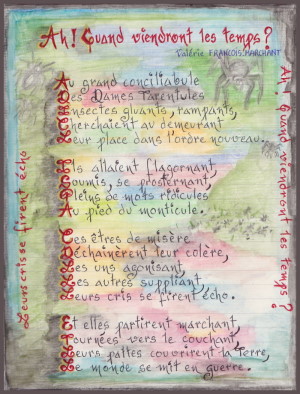 Ah! Quand viendront les temps?
Valérie FRANCOIS-MARCHANT
Au grand conciliabule
Des Dames Tarentules
Insectes gluants, rampants,
Cherchaient au demeurant
Leur place dans l'ordre nouveau.
Ils allaient flagornant,
Soumis, se prosternant,
Pleins de mots ridicules
Au pied du monticule.
Ces êtres de misère
Déchaînèrent leur colère,
Les uns agonisant,
Les autres suppliant,
Leurs cris se firent écho.
Et elles partirent marchant,
Tournées vers le couchant,
Leurs pattes couvrirent la Terre,
Le monde se mit en guerre.
Leurs cris se firent écho
Ah! Quand viendront les temps?